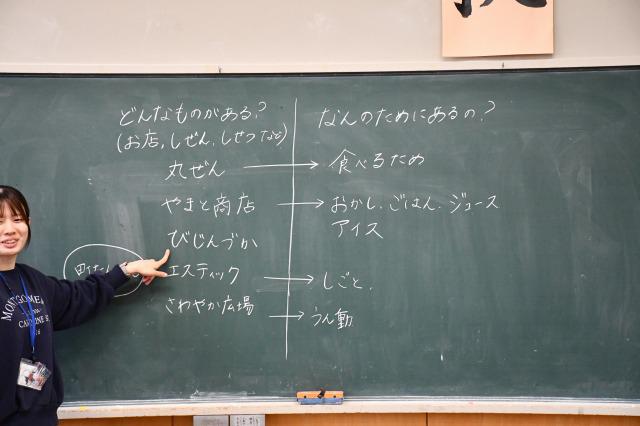 どんなものがある?
(お店,しぜん,しせつなど)
丸ぜん → 食べるため
やまと商店 → おかし、ごはん、ジュース
アイス
びじんづか
エスティック → しごと、
さわやか広場 → うん動
なんのためにあるの?
町たん
MONTGOME